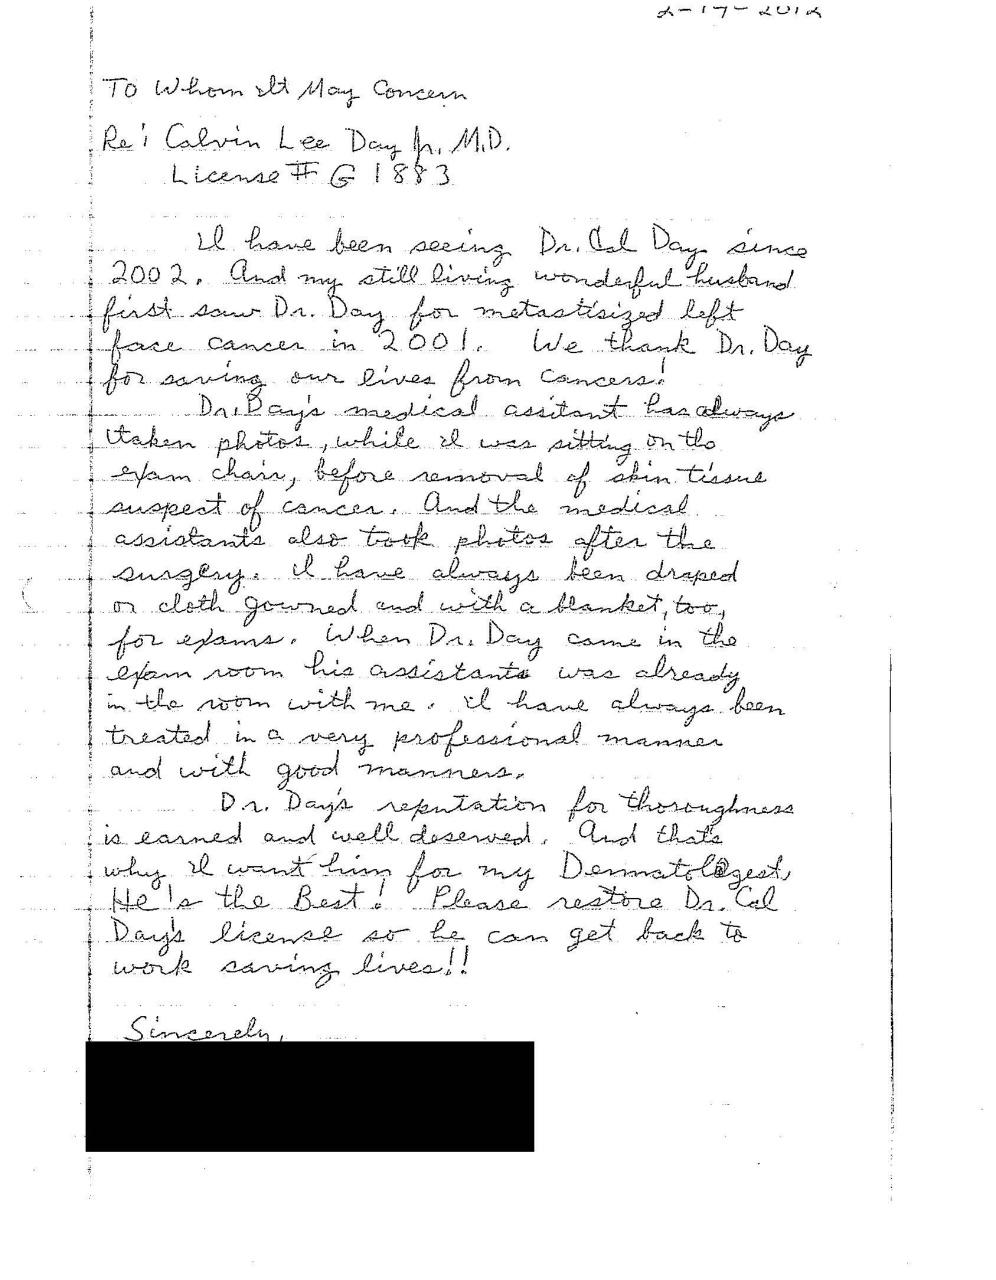 2-17-2012
To Whom It May Concern
Re: Calvin Lee Day Jr. M.D.
License # G 1883
I have been seeing Dr. Cal Day since
2002. And my still living wonderful husband
first saw Dr. Day for metastisized left
face cancer in 2001. We thank Dr. Day
for saving our lives from cancers!
Dr. Day's medical assitant has always
taken photos, while I was sitting on the
exam chair, before removal of skin tissue
suspect of cancer. And the medical
assistants also took photos after the
surgery. I have always been draped
or cloth gowned and with a blanket, too,
for exams. When Dr. Day came in the
exam room his assistants was already
in the room with me. I have always been
treated in a very professional manner
and with good manners.
Dr. Day's reputation for thoroughness
is earned and well deserved. And that's
why I want him for my Dermatologest,
He's the Best! Please restore Dr. Cal
Day's license so he can get back to
work saving lives!!
Sincerely,